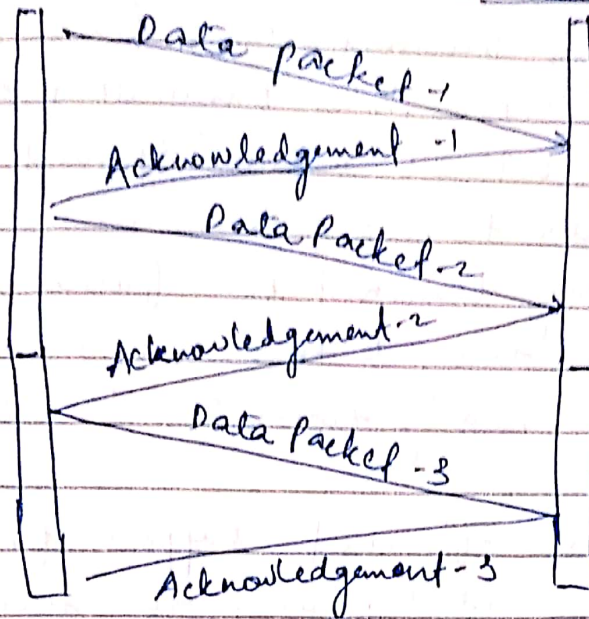 Data Packet-1
Acknowledgement -1
Data Packet-2
Acknowledgement-2
Data Packet-3
Acknowledgement-3